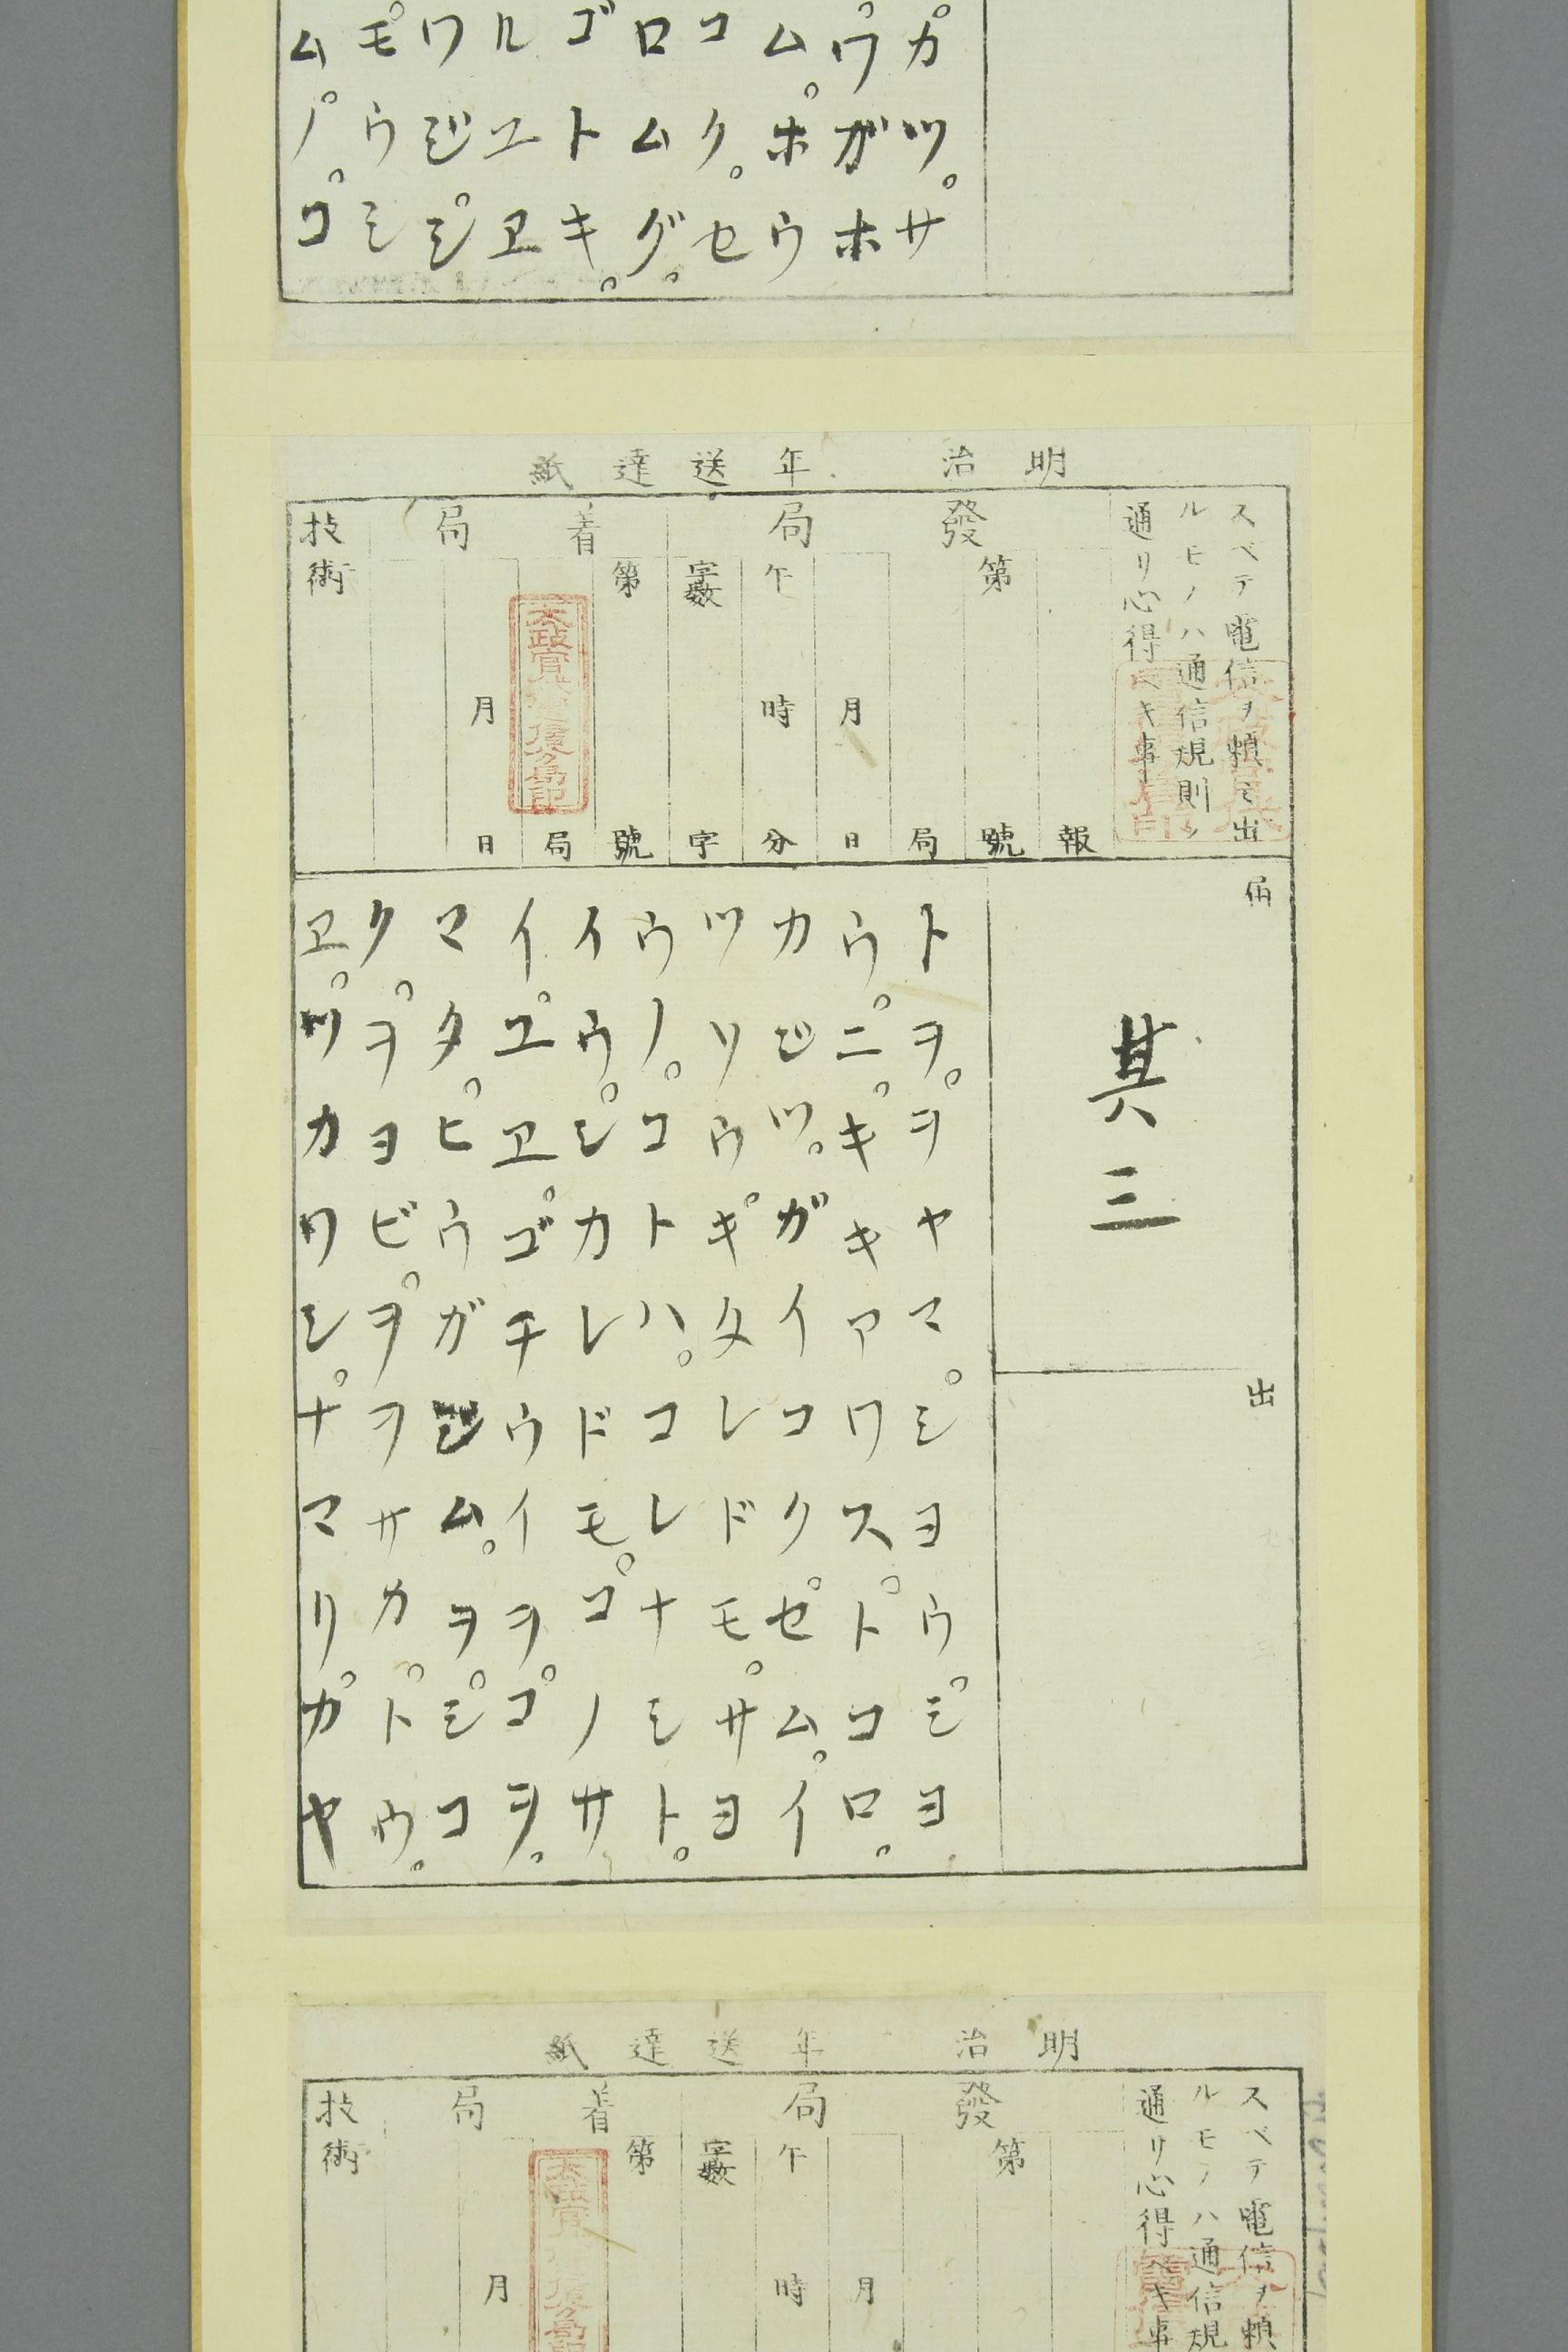 カツ。サ
。ウガホ
ム。ホウ
コク。セ
ロムグ。
ゴトキ。
ルユヱ
ワジ。シ
。モウシ
ム。ノ。コ
明治 年送達紙
スベテ電信ヲ頼ミ出
ルモノハ通信規則ノ
通リ心得ベキ事
發局
報
第 號
局
月 日
午 時 分
字數 字
着局
第 號
局
月 日
技術
届
其三
出
トヲ。ヲヤマ。シヨウ。シヨ
ウ。ニ。キキアワス。トコロ。
カジツ。ガイコク。セム。イ
ツリウ。ギタレドモ。サヨ
ウノ。コトハ。コレナシト。
イウ。シカレドモ。コノサ
イ。ユヱ。ゴチウイヲ。コヲ。
マタ。ヒウガジム。ヲ。シコ
ク。ヲヨビ。ヲヲサカ。ドウ。
ヱ。ツカワシ。ナマリ。カヤ
明治 年送達紙
スベテ電信ヲ頼
ルモノハ通信規
通リ心得ベキ事
發局
第
月
午 時
字數
着局
第
月
技術